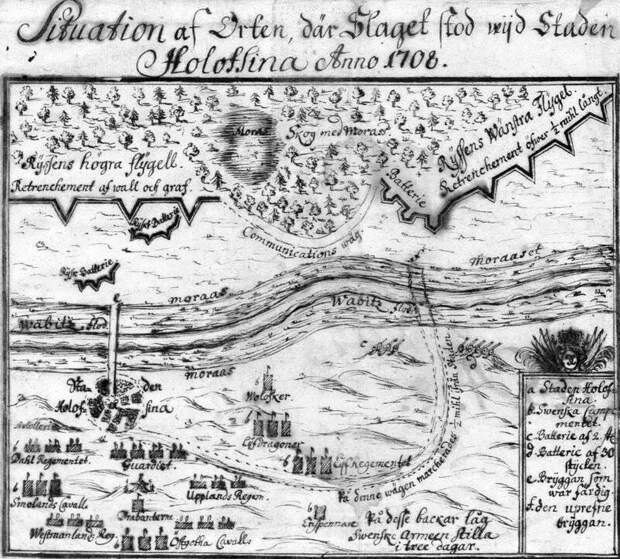 Situation af Orten, där Slaget stod wijd Staden
Holofsina Anno 1708.
Moras
Skog med Moras
Ryssens högra flygell.
Retrenchement af wall och graf.
Ryssens Wänstra Flygel
Retrenchement öfwer ¼ mihl långt.
Batterie
Rysk Batterie
Rysk Batterie
Communications wäg.
moraas
Moraaset
Wabitz flod
Wabitz flod
moraas
Staden
Holofsina
Wolosker
Lifdragoner
Lifregementet
Artollerie
Dahl Regementet.
Guardiet
Upplands Regem.
Smolands Cavall.
Drabanterne
Westmanlands Reg.
Ostgotha Cavall.
Enspennare
På denne wägen marcherades ¼ mihl ifrån Staden
På desse backar låg
Swenske Armeen stilla
i tree dagar.
a Staden Holof
sina.
b. Swenska Campe
mentet.
c. Batterie af 2. st
d. Batterie af 30
stycken.
e. Bryggan som
war färdig.
f. den uprefne
bryggan.